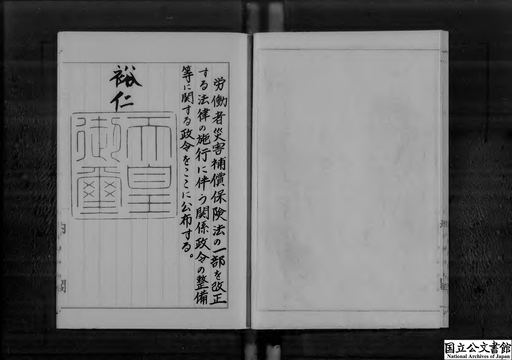 労働者災害補償保険法の一部を改正
する法律の施行に伴う関係政令の整備
等に関する政令をここに公布する。
裕仁
天皇
御璽
国立公文書館
National Archives of Japan